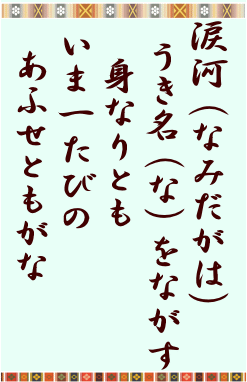 涙河（なみだがは）
うき名（な）をながす
身なりとも
いま一たびの
あふせともがな